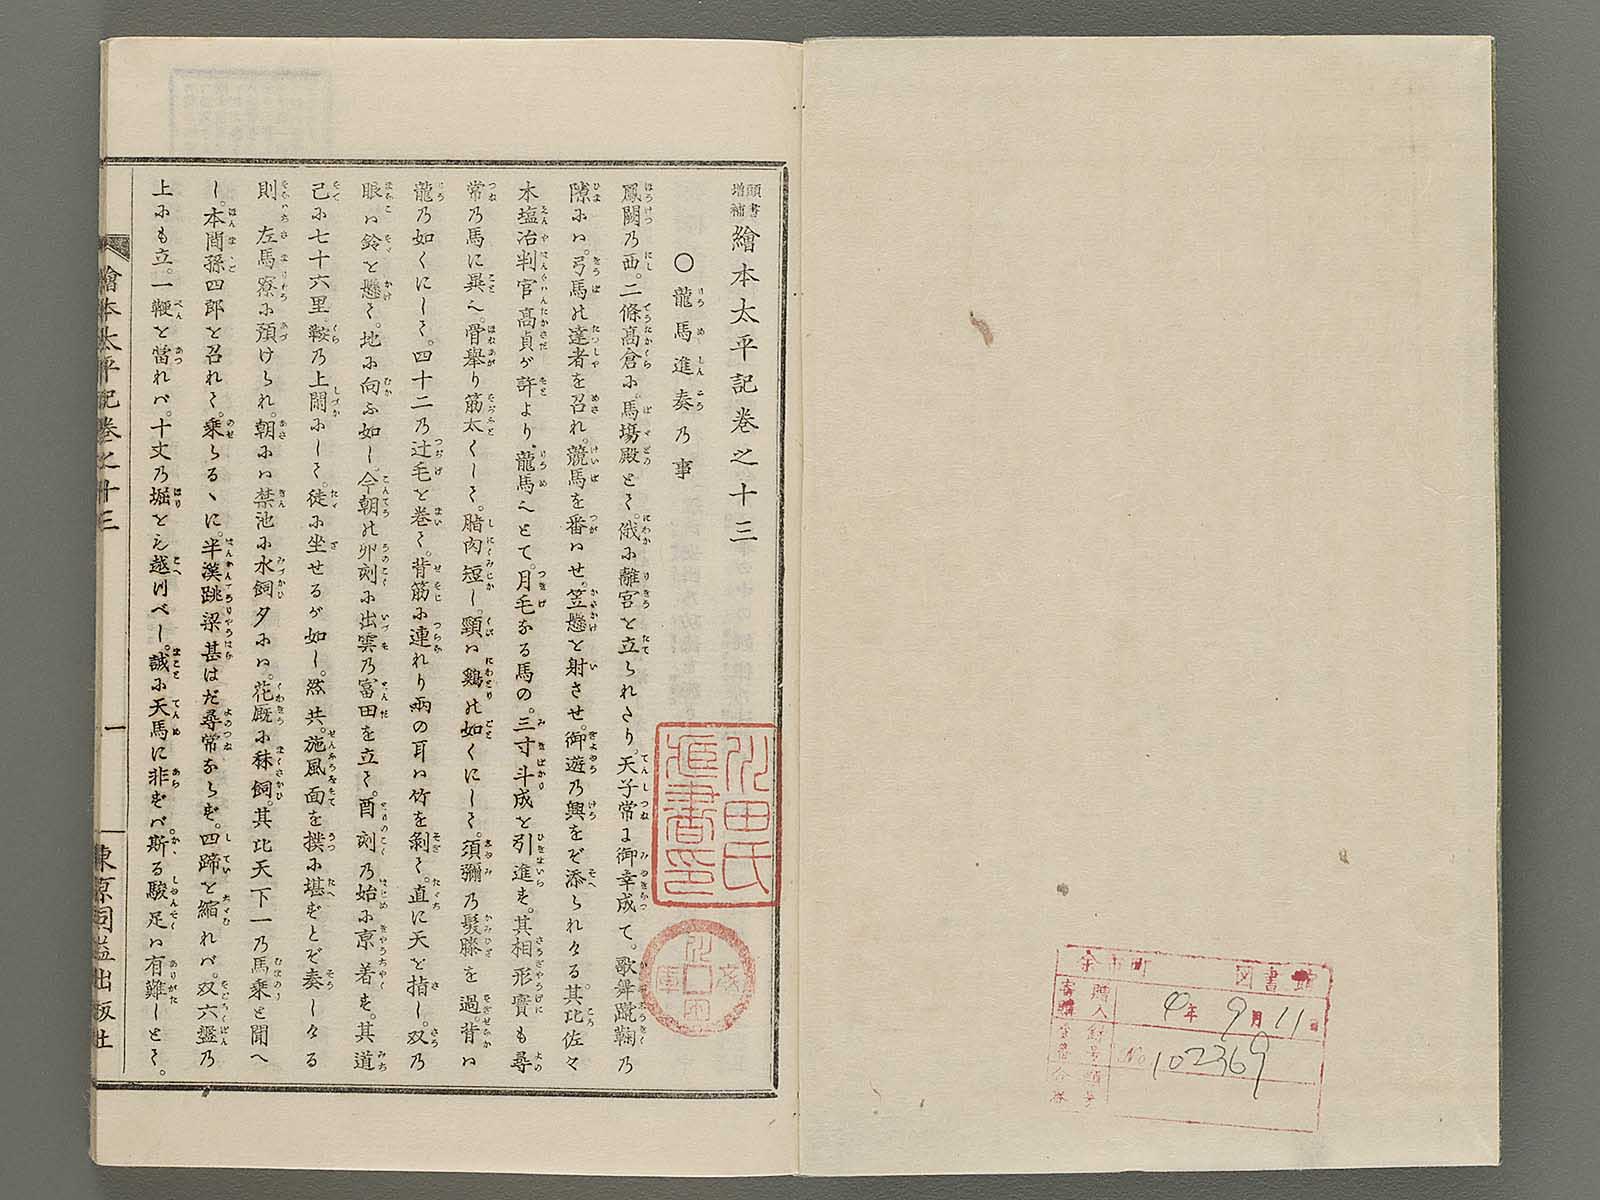 頭書
増補
繪本太平記卷之十三
○龍馬進奏乃事
鳳闕乃西。二條髙倉に。馬場殿とて。俄に離宮を立られたり。天子常に御幸成て。歌舞蹴鞠乃
隙には。弓馬の達者を召れ。競馬を番はせ。笠懸を射させ。御遊乃興をぞ添られける。其比佐々
木塩冶判官髙貞が許より。龍馬なりとて。月毛なる馬の。三寸斗成を引進ず。其相形實も尋
常乃馬に異へ。骨舉り筋太くして。脂肉短し。頸は鷄の如くにして。須彌乃髮膝を過。背は
龍乃如くにして。四十二乃辻毛を巻て。背筋に連れり兩の耳は竹を剝て。直に天を指し。双乃
眼は鈴を懸て。地に向ふ如し。今朝の卯刻に出雲乃富田を立て。酉刻乃始に京着す。其道
己に七十六里。鞍乃上閙にして。徒に坐せるが如し。然共。施風面を撲に堪ずとぞ奏しける
則左馬寮に預けられ。朝には禁池に水飼夕には。花厩に秣飼。其比天下一乃馬乗と聞へ
し。本間孫四郎を召れて。乘らるゝに。半漢跳梁甚はだ尋常ならず。四蹄を縮れバ。双六盤乃
上にも立。一鞭を當れバ。十丈乃堀をも越つべし。誠に天馬に非ずバ。斯る駿足は有難しとて。
繪本太平記卷之十三
一
東京同益出版社
小田氏
蔵書印
余市町
図書館
4年9月11日
No 102369